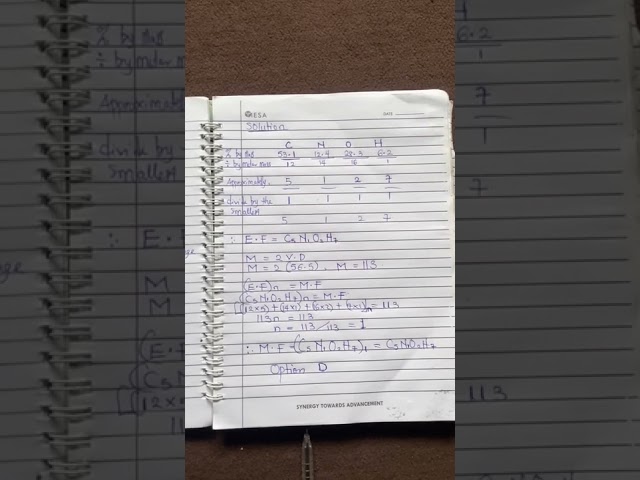 ESA
DATE
Solution
C N O H
% by Mass 53.1 12.4 28.3 6.2
÷ by molar mass 12 14 16 1
Approximately, 5 1 2 7
divide by the smallest 1 1 1 1
5 1 2 7
∴ E.F = C5N1O2H7
M = 2V.D
M = 2(56.5), M = 113
(E.F)n = M.F
(C5N1O2H7)n = M.F
[(12×5)+(14×1)+(16×2)+(7×1)]n = 113
113n = 113
n = 113/113 = 1
∴ M.F = (C5N1O2H7)1 = C5N1O2H7
Option D
SYNERGY TOWARDS ADVANCEMENT